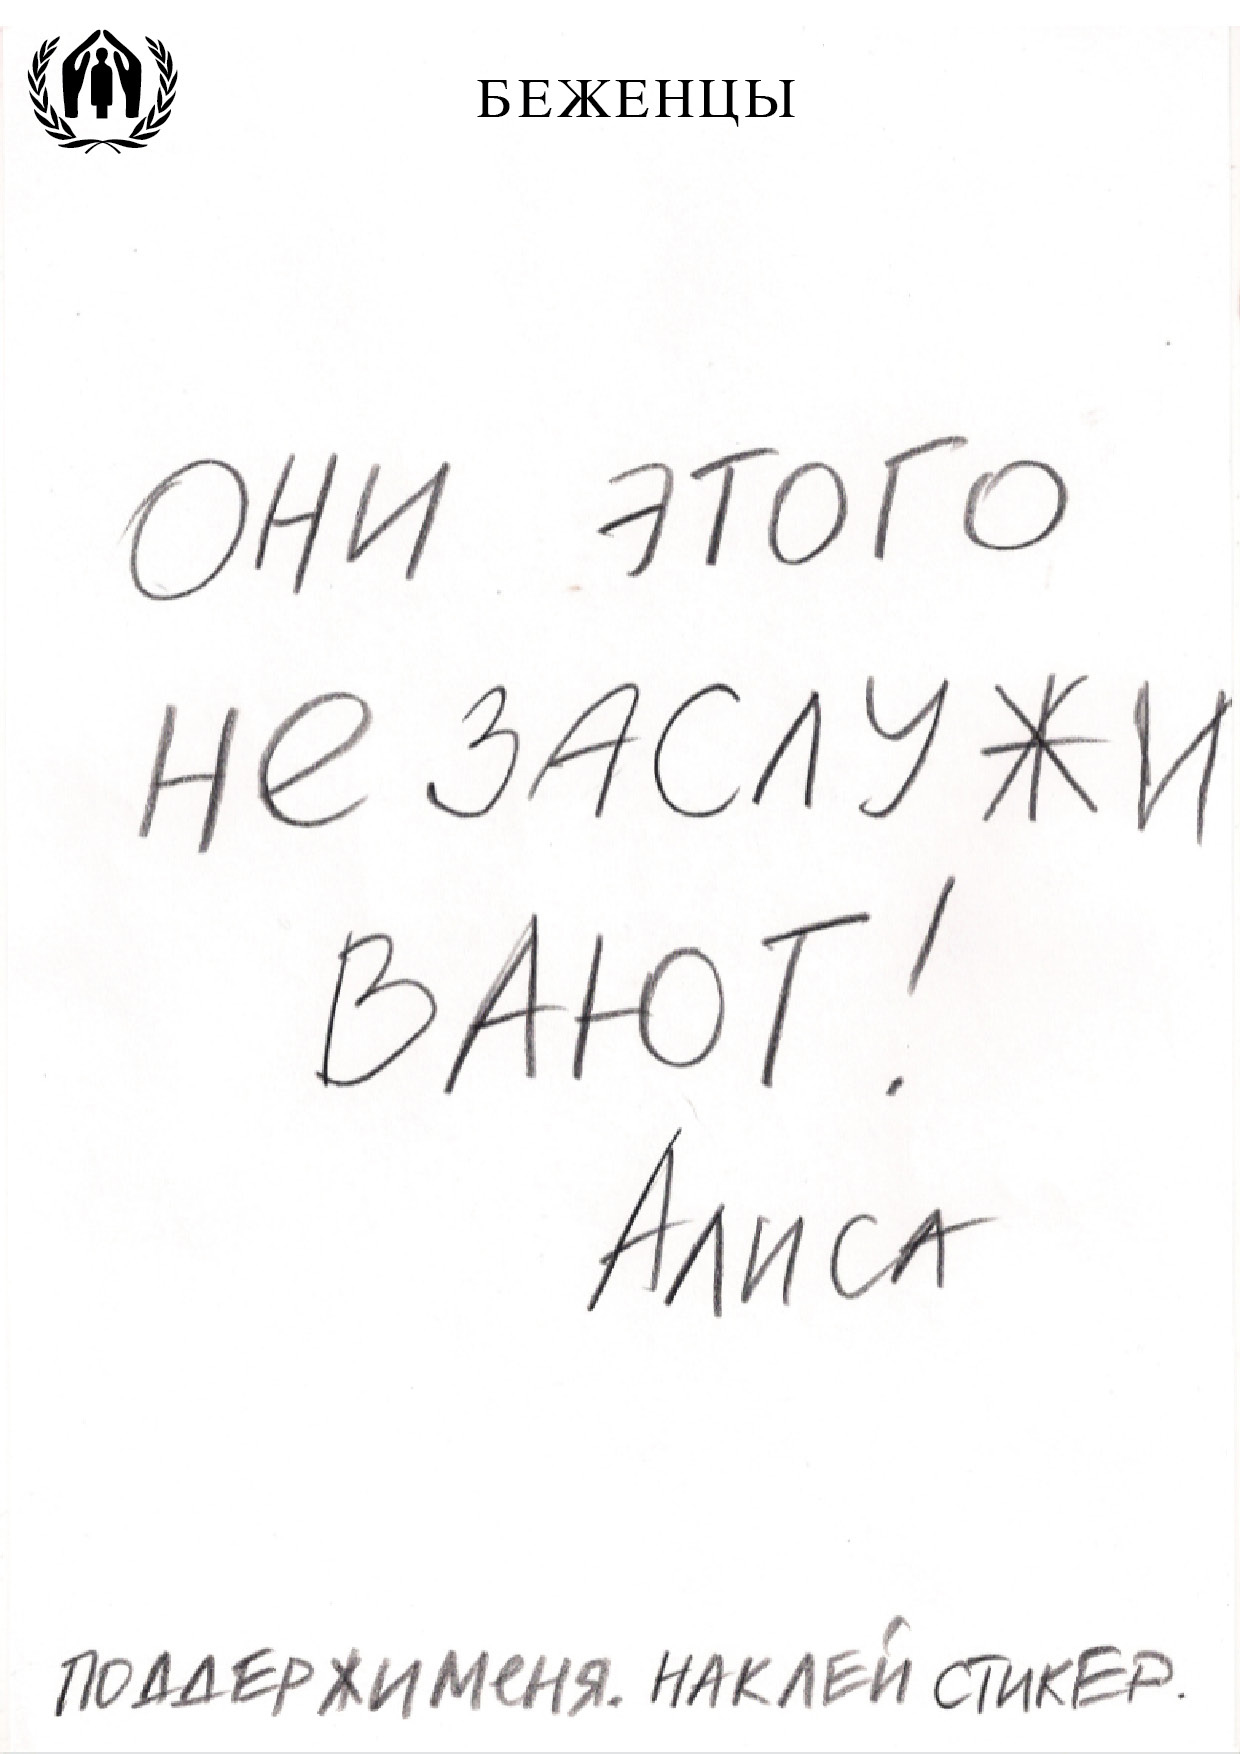 БЕЖЕНЦЫ
ОНИ ЭТОГО
Не ЗАСЛУЖИ
ВАЮТ!
Алиса
ПОДДЕРЖИ Меня. НАКЛЕЙ СТИКЕР.